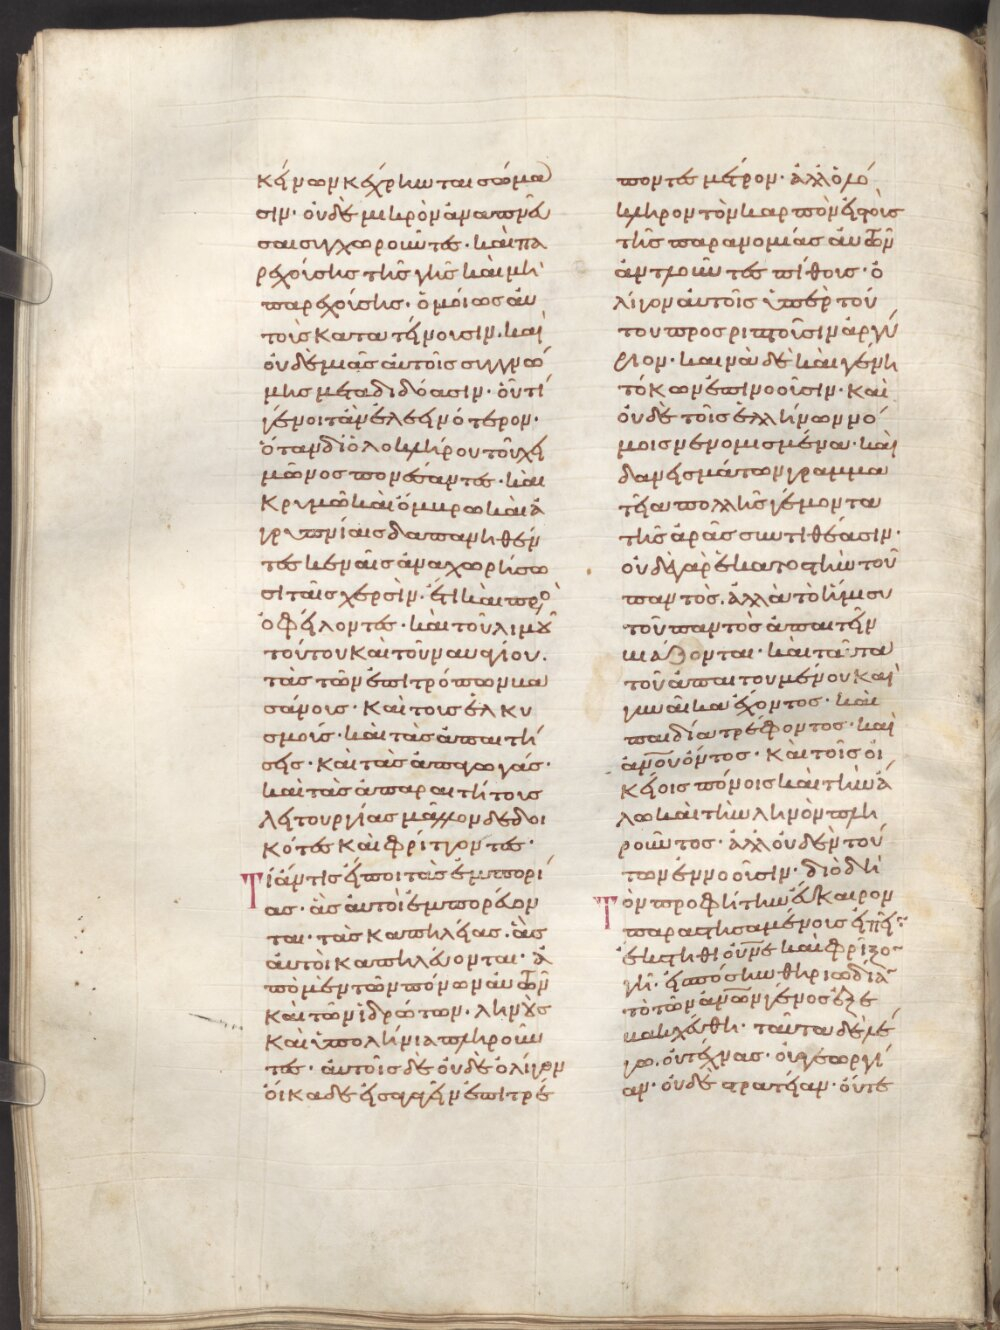 κείνων κέχρηνται σώμα
σιν· οὐδὲ μικρὸν ἀναπνεῦ
σαι συγχωροῦντες· καὶ πα
ρεχούσης τῆς γῆς καὶ μὴ
παρεχούσης· ὁμοίως αὐ
τοὺς κατατείνουσιν. καὶ
οὐδεμιᾶς αὐτοῖς συγγνώ
μης μεταδιδόασιν· οὗ τί
γένοιτ' ἂν ἐλεεινότερον·
ὅταν δι' ὁλοκλήρου τοῦ χει
μῶνος πονέσαντες· καὶ
κρυμῶ καὶ ὄμβρω καὶ ἀ
γρυπνίαις δαπανηθέν
τες κεναῖς ἀναχωρήσω
σι ταῖς χερσίν· ἔτι καὶ προσ
οφείλοντες· καὶ τοῦ λιμοῦ
τούτου καὶ τοῦ ναυαγίου.
τὰς τῶν ἐπιτρόπων βα
σάνους· καὶ τοὺς ἑλκυ
σμούς· καὶ τὰς ἀπαιτή
σεις· καὶ τὰς ἀπαγωγάς·
καὶ τὰς ἀπαραιτήτους
λειτουργίας μᾶλλον δεδοι
κότες καὶ φρίττοντες·
Τί ἄν τις εἴποι τὰς ἐμπορί
ας· ἃς αὐτοὶ ἐμπορεύον
ται· τὰς καπηλείας· ἃς
αὐτοὶ καπηλεύονται· ἀ
πὸ μὲν τῶν πόνων αὐτῶν
καὶ τῶν ἱδρώτων· ληνοὺς
καὶ ὑπολήνια πληροῦν
τες· αὐτοῖς δὲ οὐδὲ ὀλίγον
οἴκαδε εἰσαγαγεῖν ἐπιτρέ
ποντες μέτρον· ἀλλ' ὁλό
κληρον τὸν καρπὸν εἰς τοὺς
τῆς παρανομίας αὐτῶν
ἀντλοῦντες πίθους· ὀ
λίγον αὐτοῖς ὑπὲρ τού
του προσριπτοῦσιν ἀργύ
ριον· καινὰ δὲ καὶ γένη
τόκων ἐπινοοῦσιν· καὶ
οὐδὲ τοῖς ἑλλήνων νό
μοις νενομισμένα· καὶ
δανεισμάτων γραμμα
τεῖα πολλῆς γέμοντα
τῆς ἀρᾶς συντιθέασιν·
οὐδὲ γὰρ ἑκατοστὴν τοῦ
παντός. ἀλλὰ τὸ ἥμισυ
τοῦ παντὸς ἀπαιτεῖν
βιάζονται· καὶ ταῦτα
τοῦ ἀπαιτουμένου καὶ
γυναῖκα ἔχοντος· καὶ
παιδία τρέφοντος· καὶ
ἀνου ὄντος· καὶ τοῖς οἰ
κείοις πόνοις καὶ τὴν ἅ
λω καὶ τὴν ληνὸν πλη
ροῦντος· ἀλλ' οὐδὲν τού
των ἐννοοῦσιν· διὸ δὴ
Τὸν προφήτην εὔκαιρον
παραστησαμένους εἰπεῖν·
ἔκστηθι οὐνὲ καὶ φρίξον
γῆ· εἰς πόσην θηριωδίαν
τὸ τῶν ἀνων γένος ἐξε
βακχεύθη· ταῦτα δὲ λέ
γω. οὐ τέχνας· οὐ γεωργί
αν· οὐδὲ στρατείαν· οὔτε